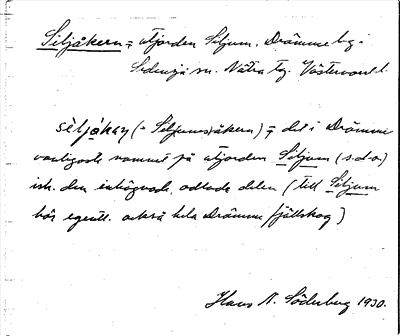 Siljåkern = utjorden Siljum. Drömme by i
Sidensjö sn. Nätra tg. Västernorrl. l.
seljåkan (= Siljumsåkern) = det i Drömme
vanligaste namnet på utjorden Siljum (s.d.o.)
isht. den inhägnade, odlade delen (till Siljum
hör egentl. också hela Drömme fjällskog)
Hans N. Söderberg 1930.